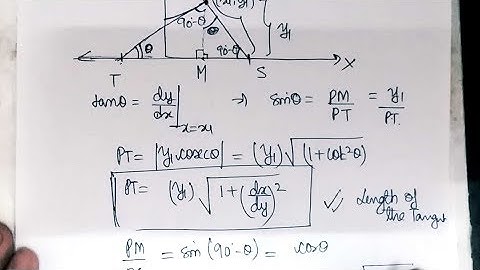 (x₁,y₁)
90-θ
θ
y₁
θ
90-θ
T M S X
tanθ = dy/dx |x=x₁ → sinθ = PM/PT = y₁/PT.
PT = |y₁ cosecθ| = (y₁) √(1+cot²θ)
PT = (y₁) √(1+(dx/dy)²) Length of
the Tangent
PM = sin (90-θ) = cosθ